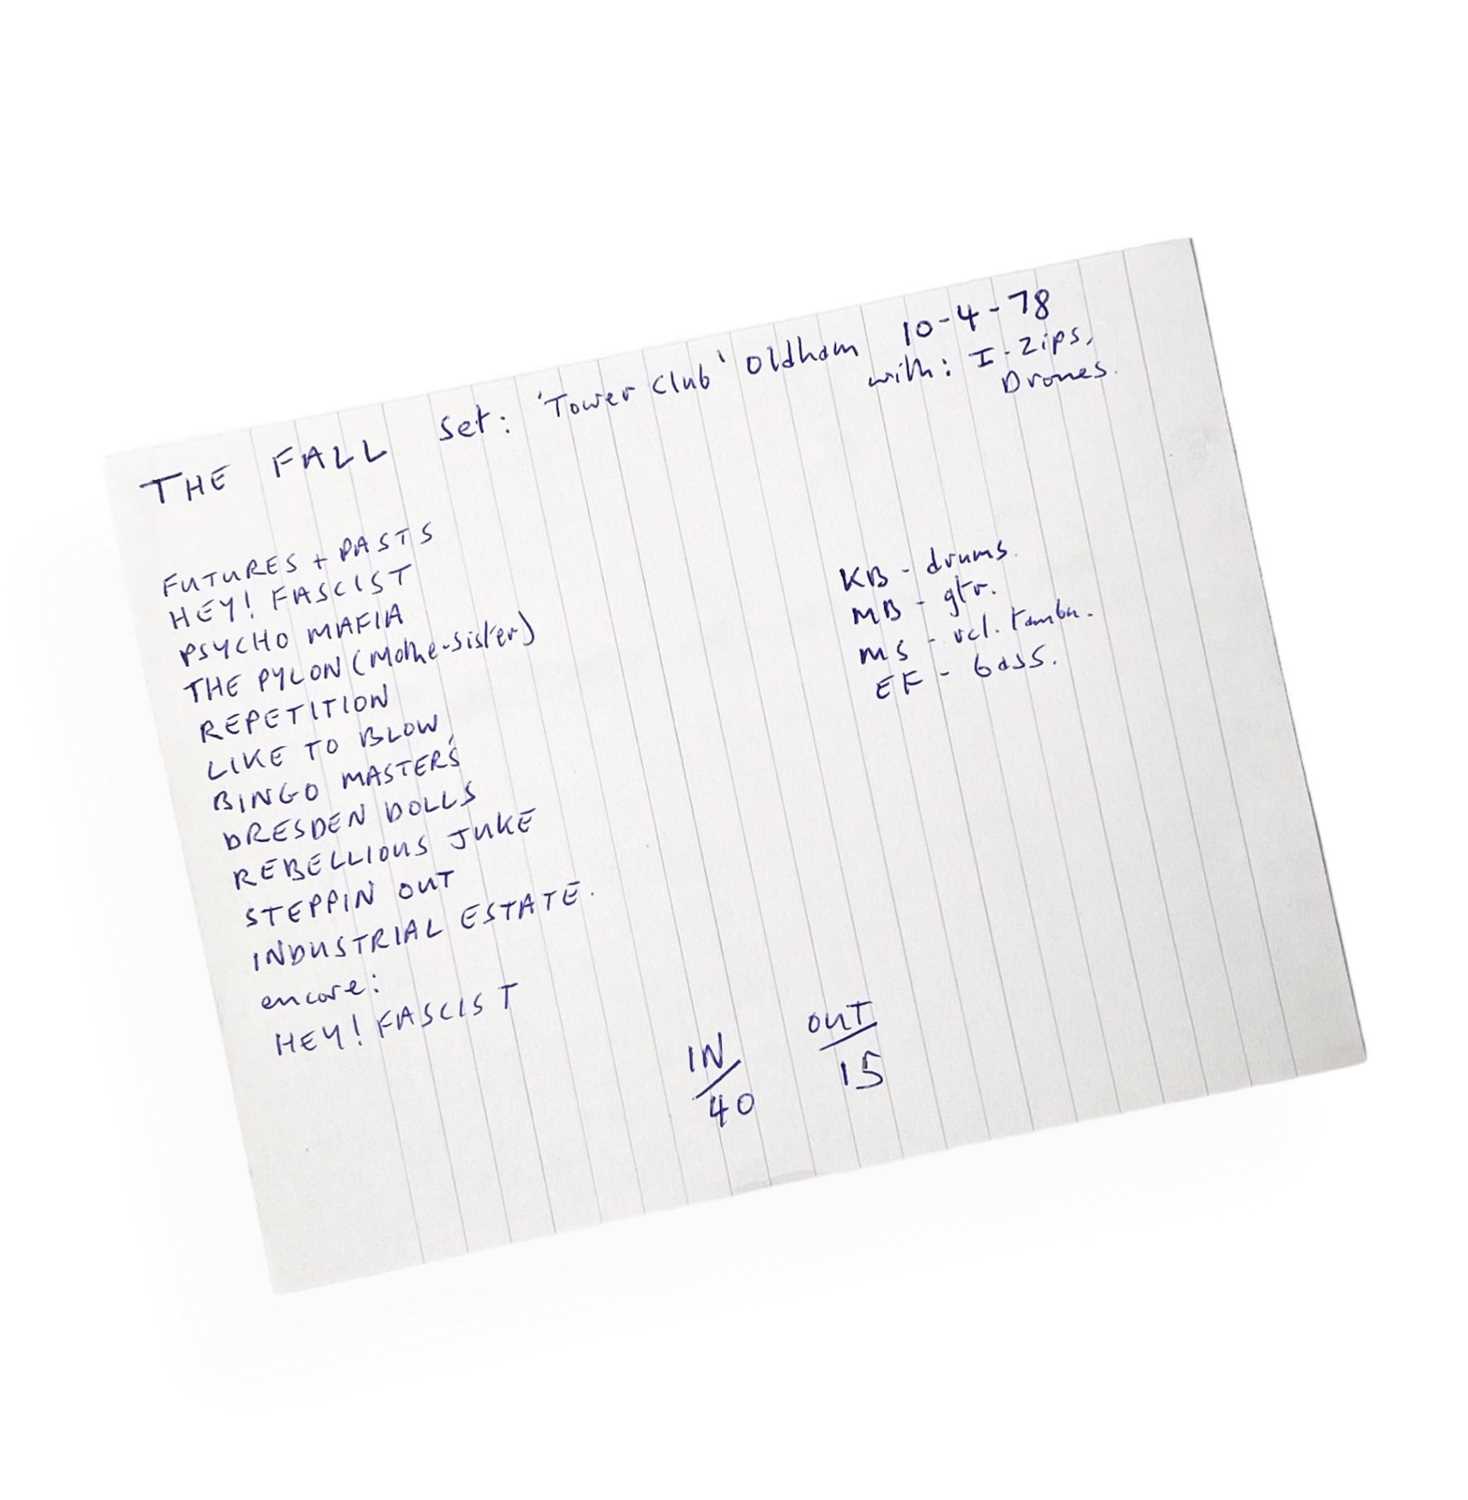 THE FALL Set: 'Tower Club' Oldham 10-4-78
with: I. Zips,
Drones.
FUTURES + PASTS
HEY! FASCIST
PSYCHO MAFIA
THE PYLON (Mothe-Sister)
REPETITION
LIKE TO BLOW
BINGO MASTER'S
DRESDEN DOLLS
REBELLIOUS JUKE
STEPPIN OUT
INDUSTRIAL ESTATE.
encore:
HEY! FASCIST
KB - drums.
MB - gtr.
MS - vcl. tambn.
EF - bass.
IN OUT
40 15